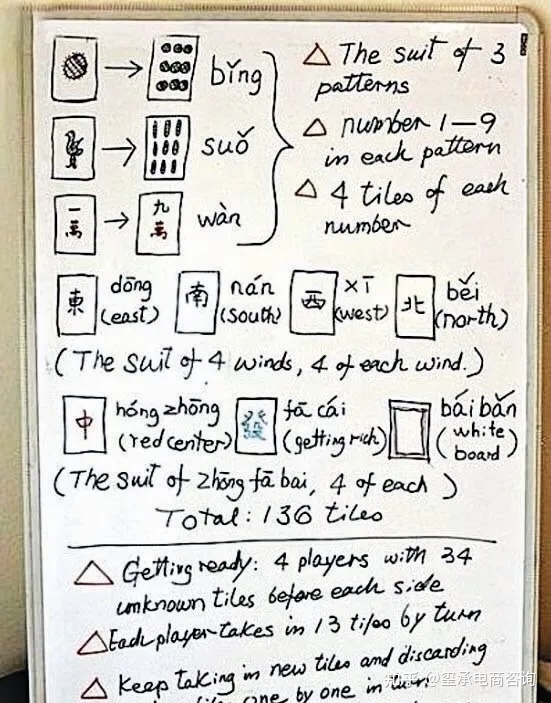 bǐng
suǒ
一萬
九萬
wàn
The suit of 3
patterns
number 1—9
in each pattern
4 tiles of each
number
東
dōng
(east)
南
nán
(south)
西
xī
(west)
北
běi
(north)
(The suit of 4 winds, 4 of each wind.)
中
hóng zhōng
(red center)
發
fā cái
(getting rich)
bái bǎn
(white
board)
(The suit of zhōng fā bai, 4 of each)
Total: 136 tiles
Getting ready: 4 players with 34
unknown tiles before each side
Each player takes in 13 tiles by turn
Keep taking in new tiles and discarding
one by one in turn
知乎 @玺承电商咨询